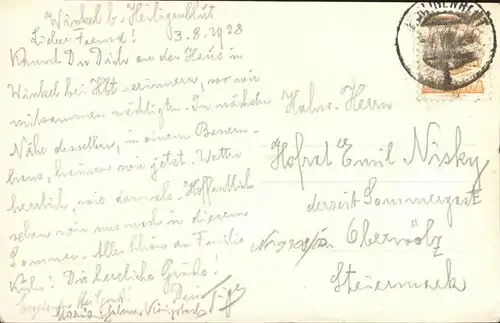 Winkel b. Heiligenblut
3.8.1928
Lieber Freund!
Kannst Du Dich an das Haus in
Winkel bei Hbt. erinnern, wo wir
mitsammen nächtigten. In nächster
Nähe desselben, in einem Bauern-
haus, hausen wir jetzt. Wetter
herrlich, wie damals. Hoffentlich
sehen wir uns noch in diesem
Sommer. Alles Schöne an Familie
Die herzlichsten Grüße!
Dein
Maria
HEILIGENBLUT
Herrn
Hofrat Emil Nisky
derzeit Sommergast
Oberwölz
Steiermark